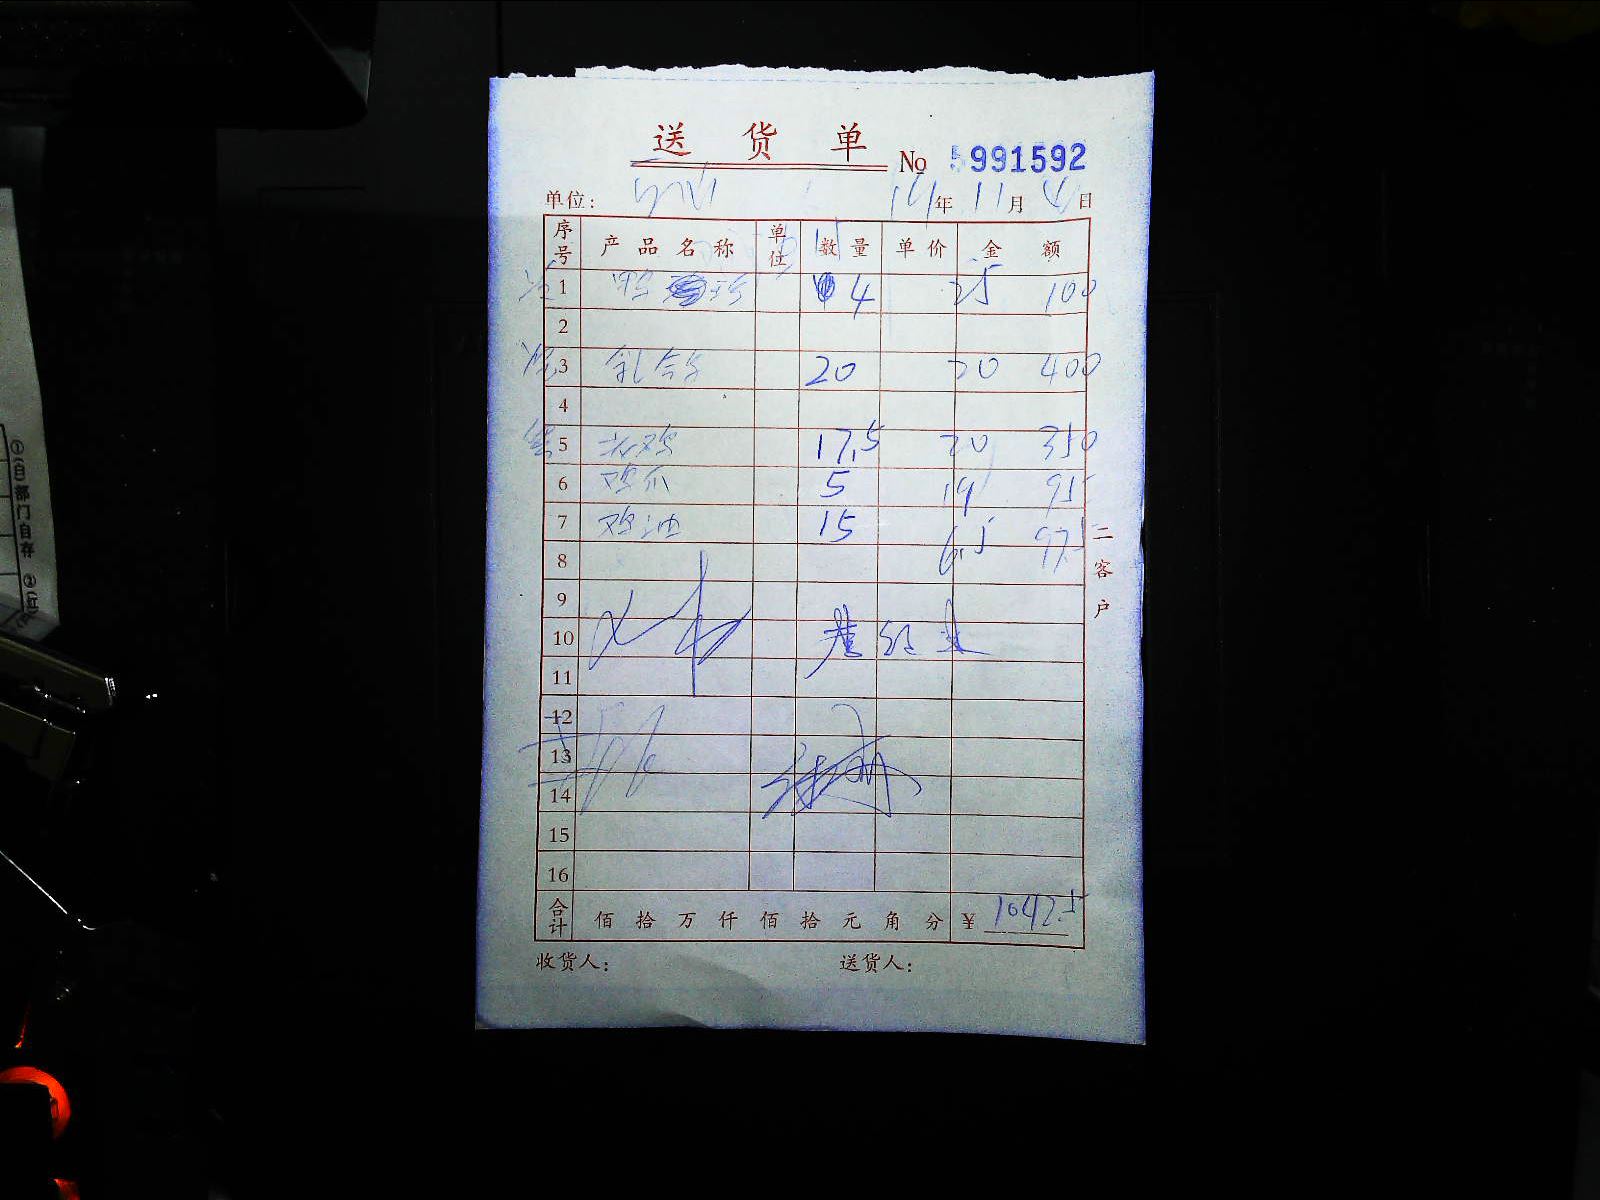 送货单 No 5991592
单位: 14年11月 日
序号 产品名称 单位 数量 单价 金额
1 鸭 珍 4 25 100
2
3 乳鸽 20 20 400
4
5 老鸡 17.5 20 350
6 鸡爪 5 19 95
7 鸡油 15 6.5 97.5
8
9
10
11
12
13
14
15
16
合计 佰拾万仟佰拾元角分 ¥ 1042.5
收货人: 送货人:
二客户
①(白)部门自存 ②(红)